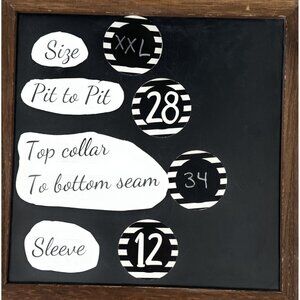 Size XXL
Pit to Pit 28
Top collar
To bottom seam 34
Sleeve 12